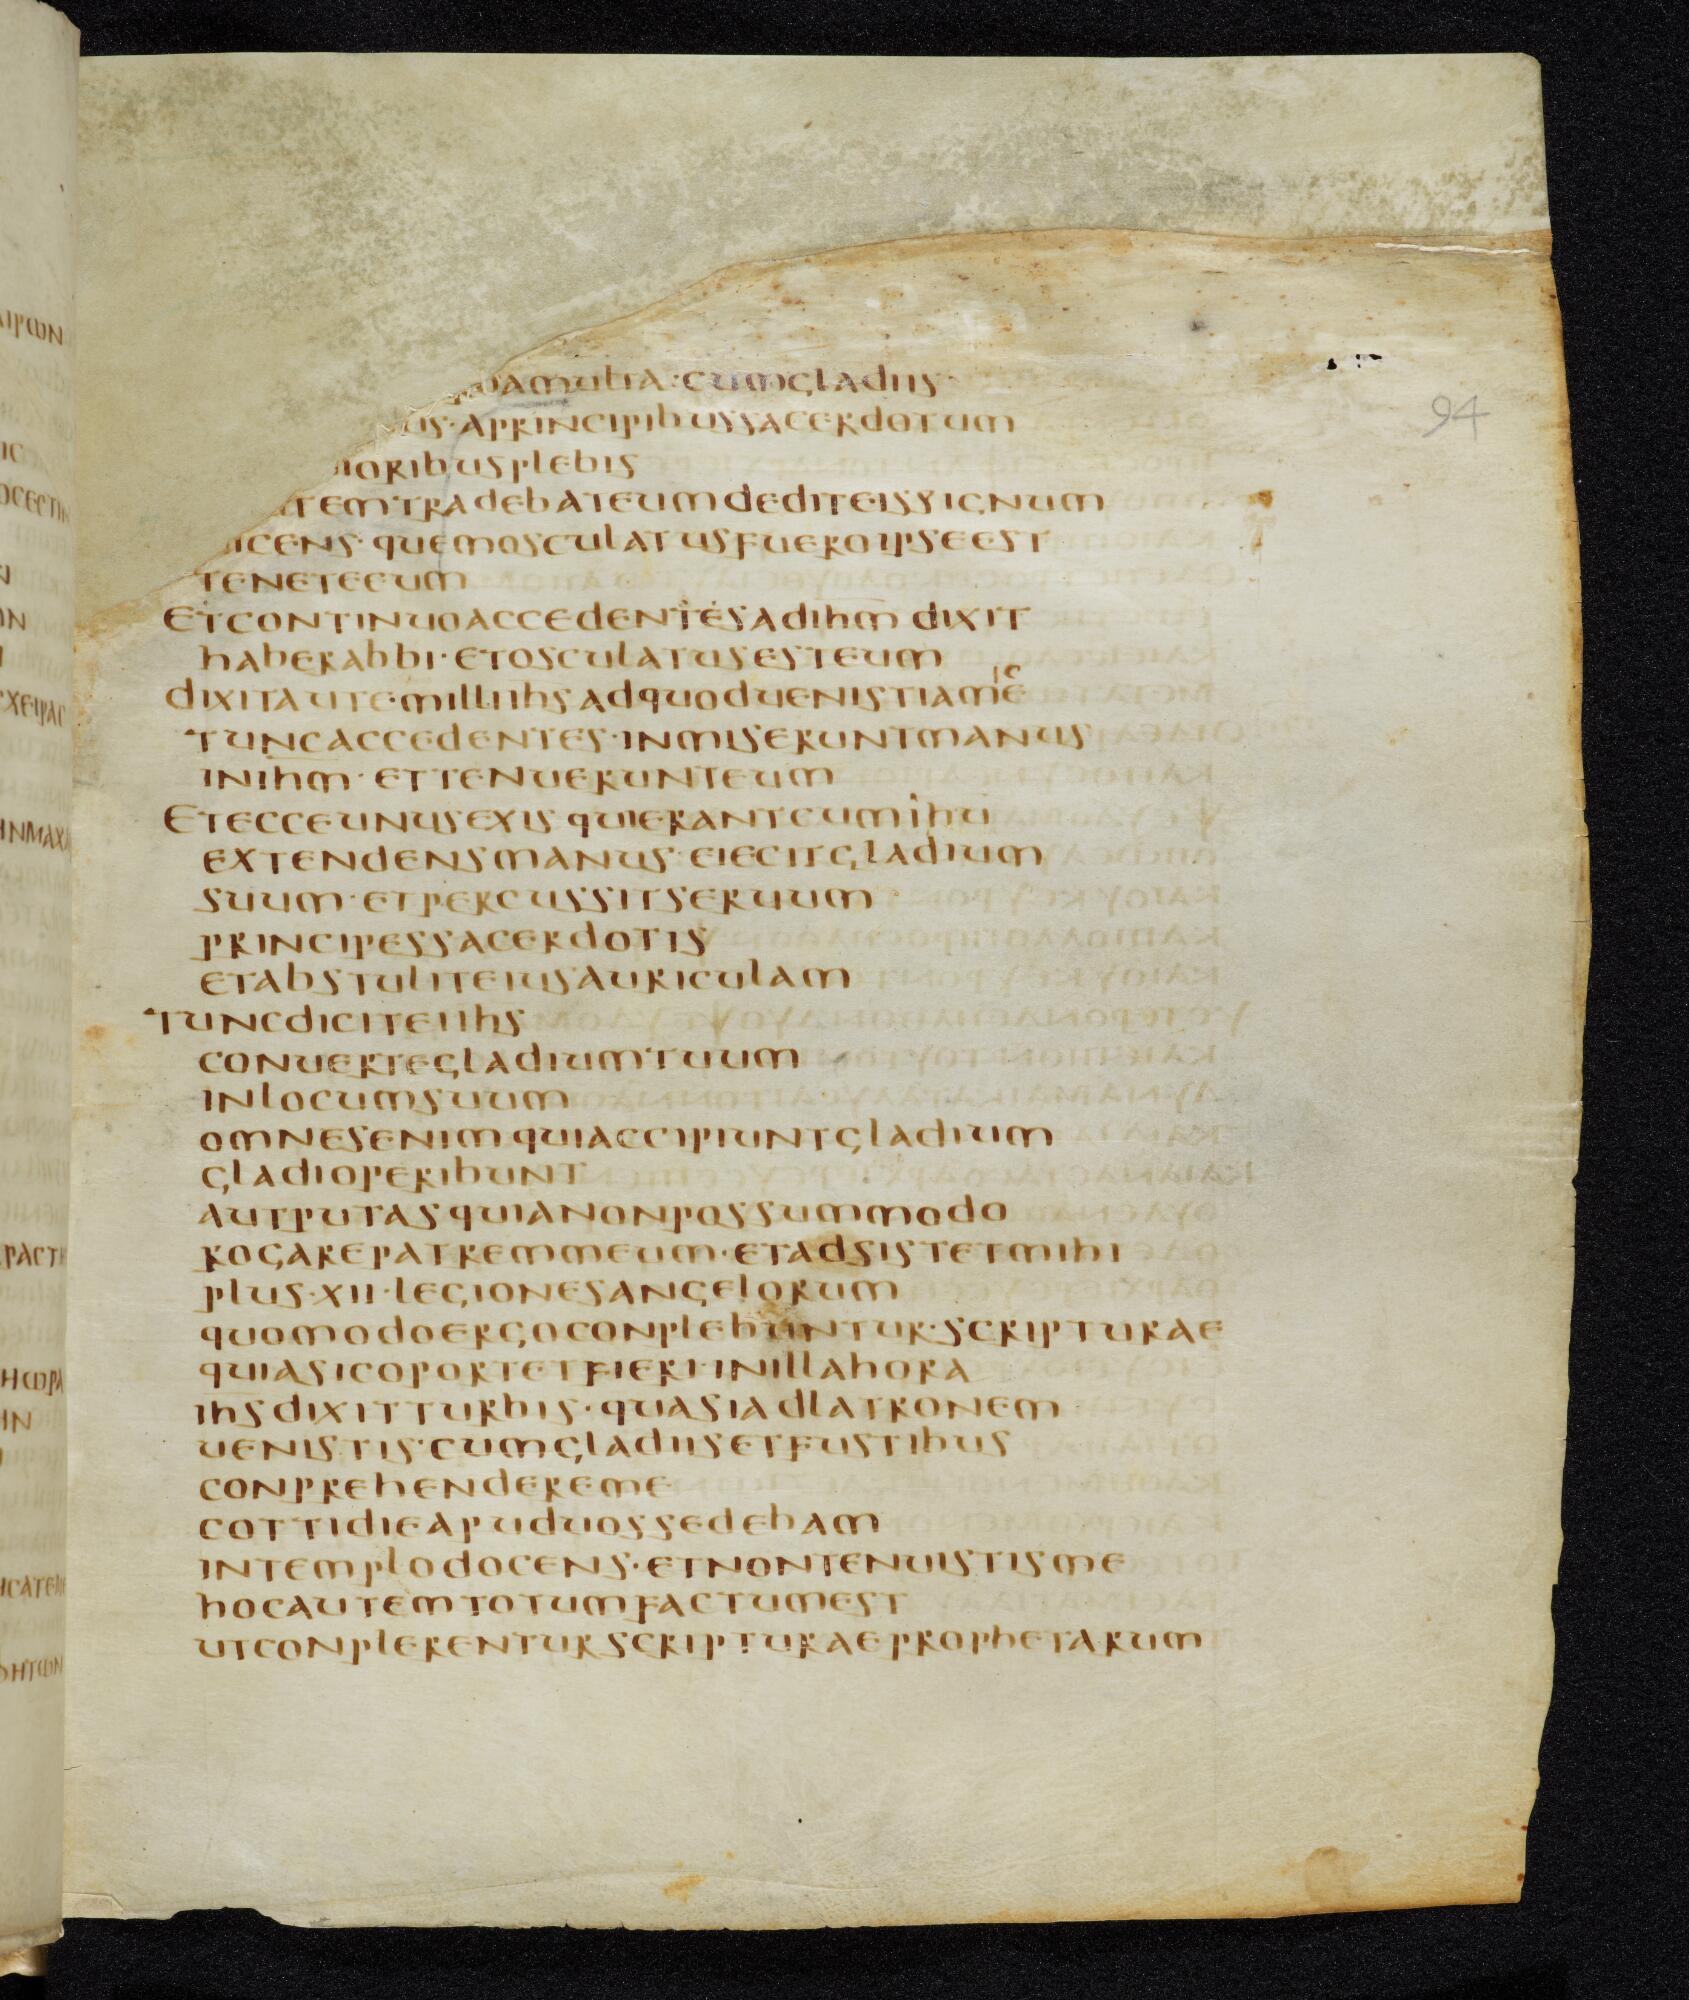 uamulta·cumgladiis·
us·aprincipibussacerdotum
ioribusplebis
temtradebateumdediteissignum
icens·quemosculatusfueroipseest
teneteeum
etcontinuoaccedentesadihm dixit
haberabbi·etosculatusesteum
dixitaute·milliihsadquoduenistiamice
tuncaccedentes·inmiseruntmanus
inihm·ettenuerunteum
etecceunusexis quierantcumihu
extendensmanus·eiecitgladium
suum·etpercussitseruum
principessacerdotis
etabstuliteiusauriculam
tuncdiciteiihs
conuertegladiumtuum
inlocumsuum
omnesenimquiaccipiuntgladium
gladioperibunt
autputasquianonpossummodo
rogarepatremmeum·etadsistetmihi
plus·xii·legionesangelorum
quomodoergoconplebuntur·scripturae
quiasicoportetfieri·inillahora
ihsdixitturbis·quasiadlatronem
uenistis·cumgladiisetfustibus
conprehendereme
cottidieapuduossedebam
intemplodocens·etnontenuistisme
hocautemtotumfactumest
utconplerenturscripturaeprophetarum
94